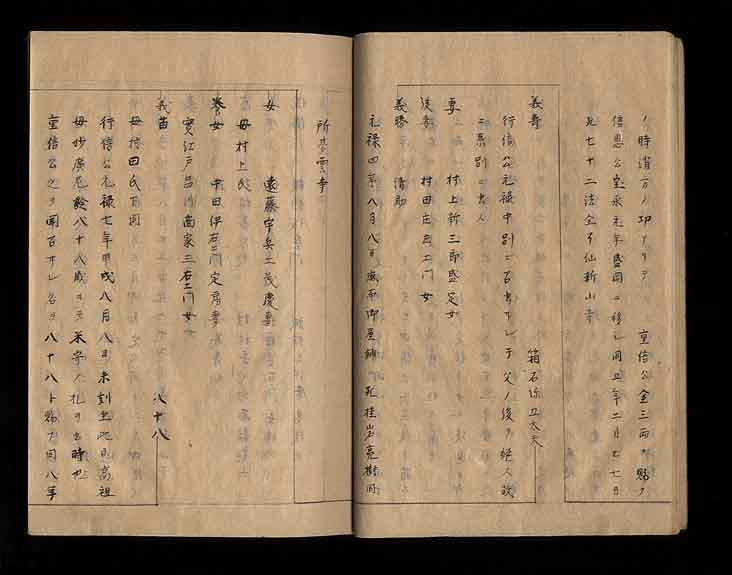 ノ時消方ノ功ナリテ 重信公金三両ヲ賜ク
信恩公宝永元年盛岡ニ移ル同五年二月七七日
死七十二法全了仙新山寺
箱石弥五太夫
義寿
行信公元禄中別ニ召出サレ于父ノ後ヲ継人改
ニ系別ニ出人
妻 村上新三郎盛定女
後妻 村田庄三エ門女
義勝 清助
元禄四年八月八日 死桂岩亮樹同
所夢雲寺
女 遠藤宇兵エ茂慶妻
母村上氏
養女 中田伊右エ門定房妻
実江戸呂川商家三右エ門女
義苗 八十八
母村田氏
行信公元禄七年甲戌八月八日未刻生此日高祖
母妙広尼齢八十八歳ニテ米字ノ札ヲ出時也
重信公之ヲ聞召サレ名ヲ八十八ト賜フ同八年